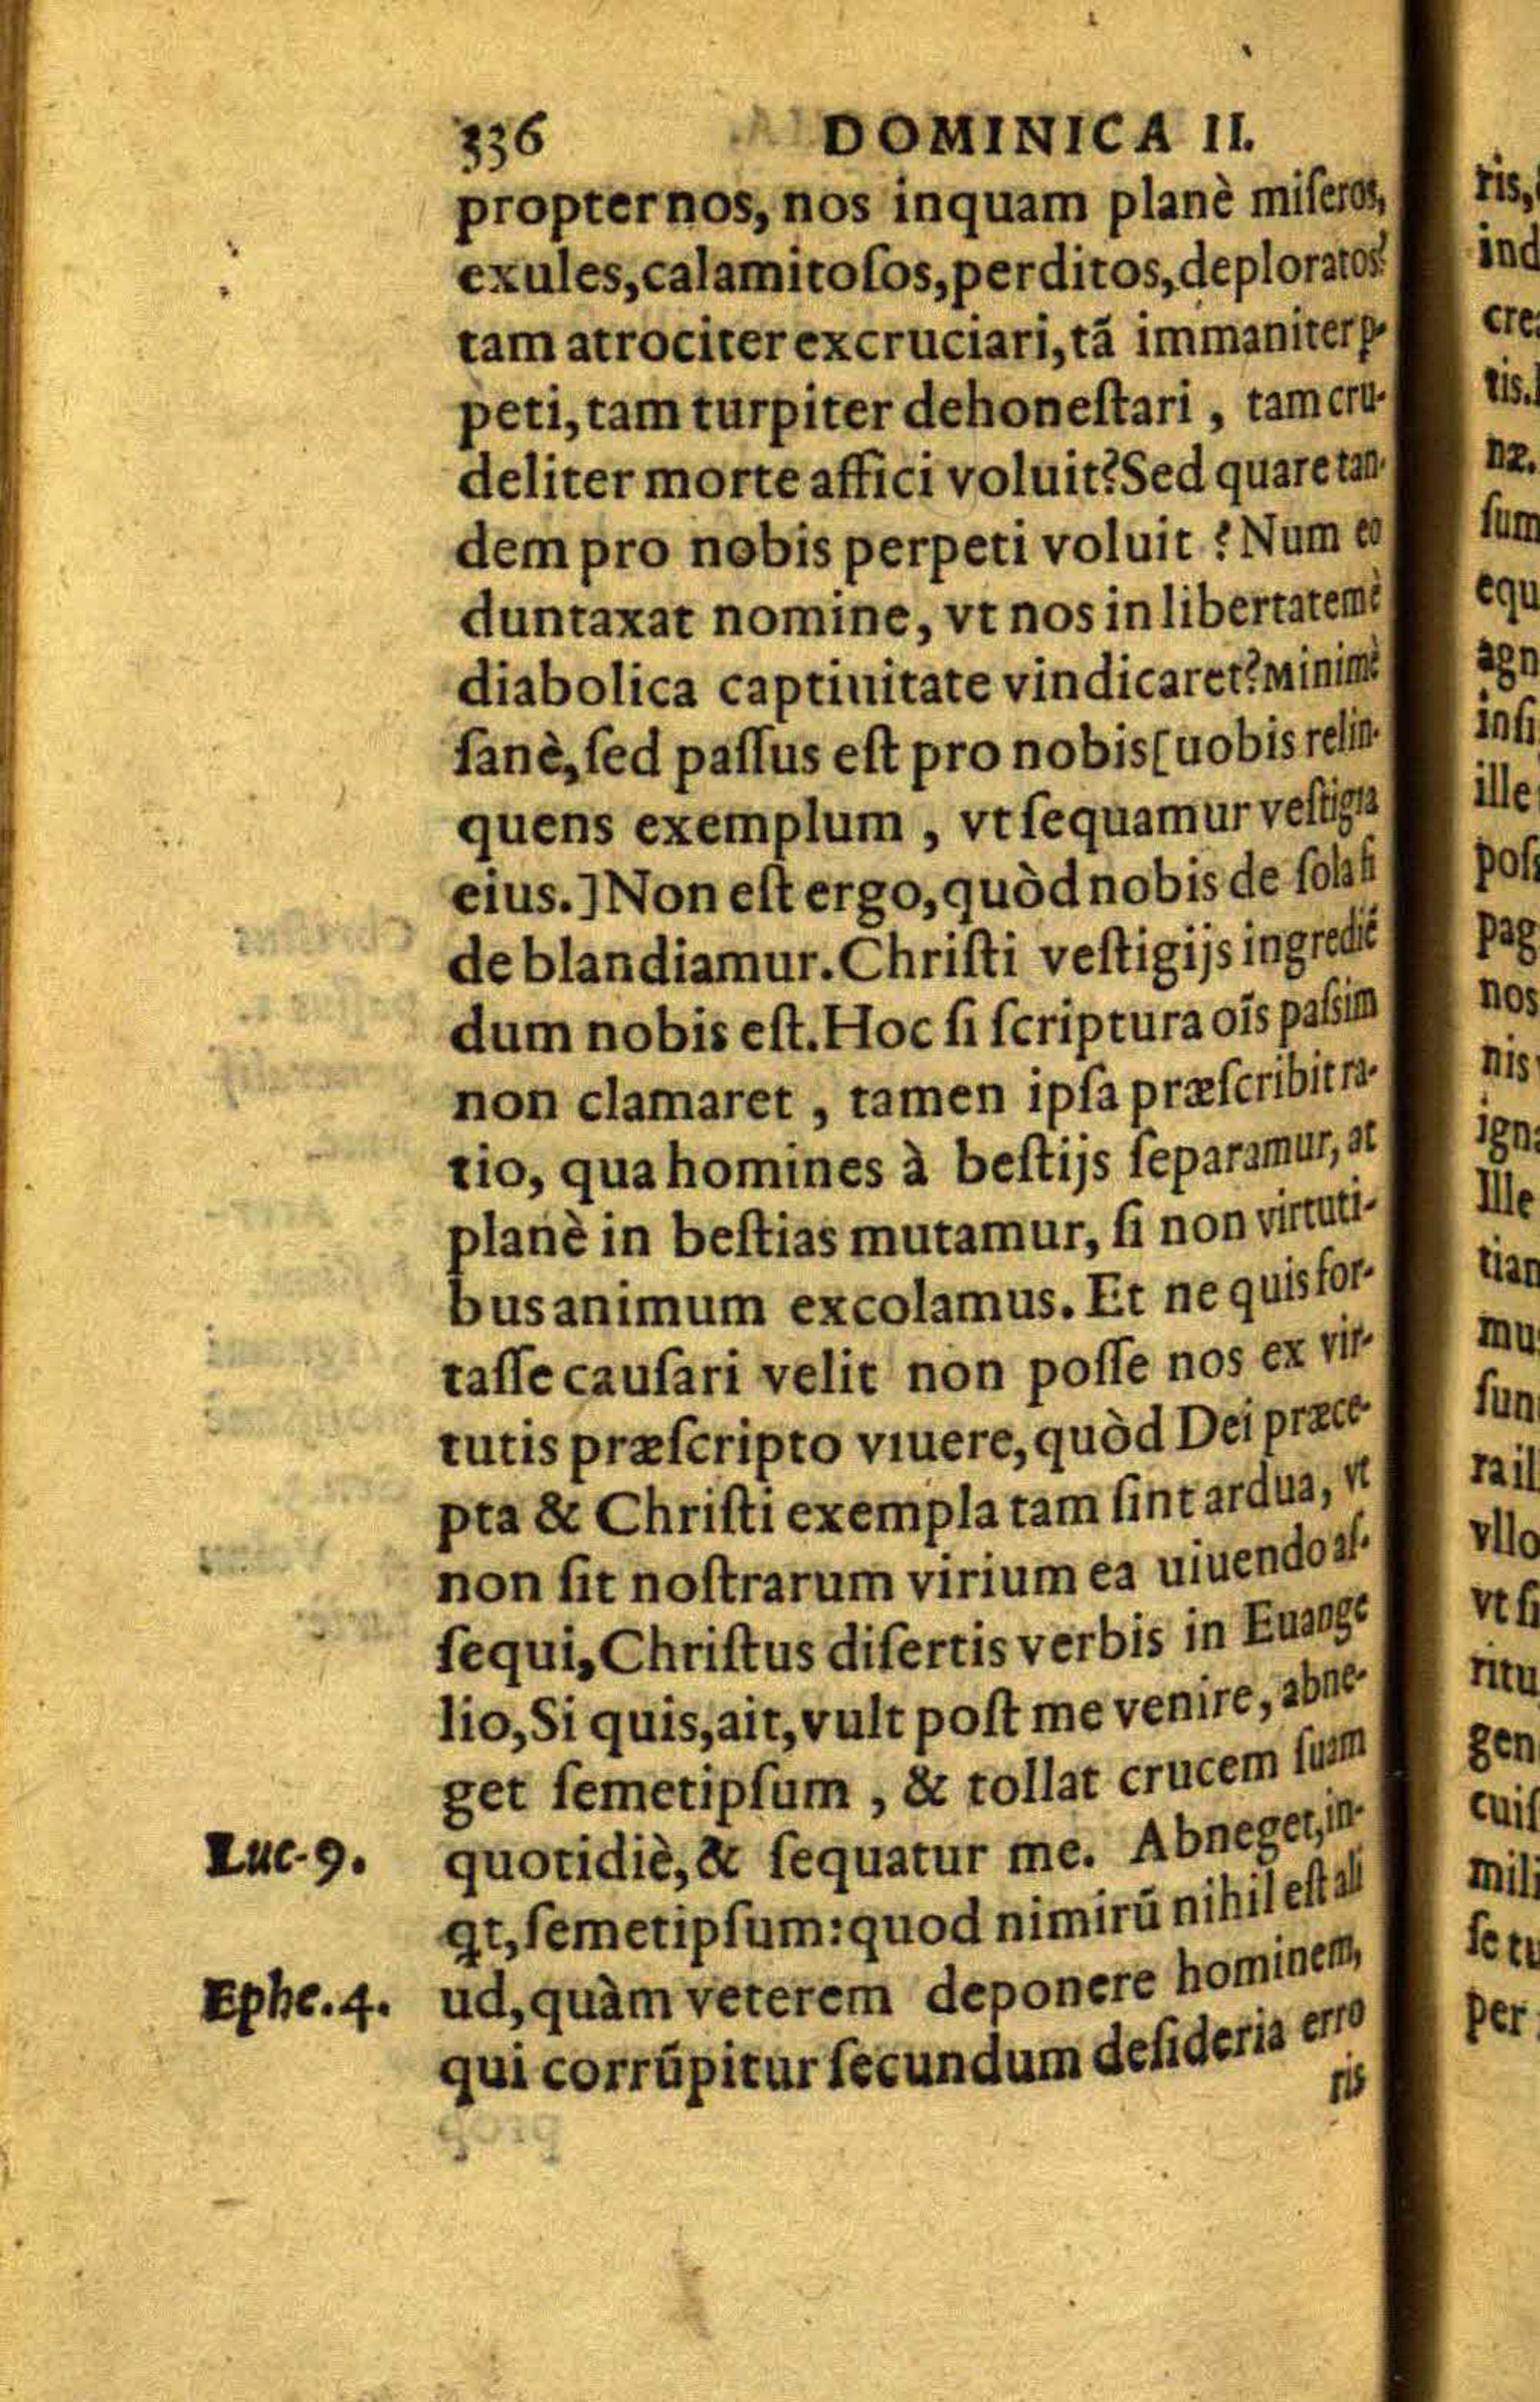 336 DOMINICA II.
propter nos, nos inquam planè miſeros,
exules, calamitoſos, perditos, deploratos?
tam atrociter excruciari, tã immaniter ꝑ-
peti, tam turpiter dehoneſtari, tam cru-
deliter morte affici voluit? Sed quare tan-
dem pro nobis perpeti voluit? Num eo
duntaxat nomine, vt nos in libertatem è
diabolica captiuitate vindicaret? Minimè
ſanè, ſed paſſus eſt pro nobis [uobis relin-
quens exemplum, vt ſequamur veſtigia
eius.] Non eſt ergo, quòd nobis de ſola fi
de blandiamur. Chriſti veſtigijs ingrediẽ
dum nobis eſt. Hoc ſi ſcriptura oĩs paſsim
non clamaret, tamen ipſa præſcribit ra-
tio, qua homines à beſtijs ſeparamur, at
planè in beſtias mutamur, ſi non virtuti-
bus animum excolamus. Et ne quis for-
taſſe cauſari velit non poſſe nos ex vir-
tutis præſcripto viuere, quòd Dei præce-
pta & Chriſti exempla tam ſint ardua, vt
non ſit noſtrarum virium ea uiuendo aſ-
ſequi, Chriſtus diſertis verbis in Euange
lio, Si quis, ait, vult poſt me venire, abne-
get ſemetipſum, & tollat crucem ſuam
Luc. 9. quotidiè, & ſequatur me. Abneget, in-
qt, ſemetipſum: quod nimirũ nihil eſt ali
Ephe. 4. ud, quàm veterem deponere hominem,
qui corrũpitur ſecundum deſideria erro
ris
ris,
ind
cre
tis.
næ.
ſum
equ
agn
inſi
ille
poſ
pag
nos
nis
ign
Ille
tian
mu
ſun
rail
vllo
vt ſi
ritu
gen
cuiſ
mili
ſe tu
per